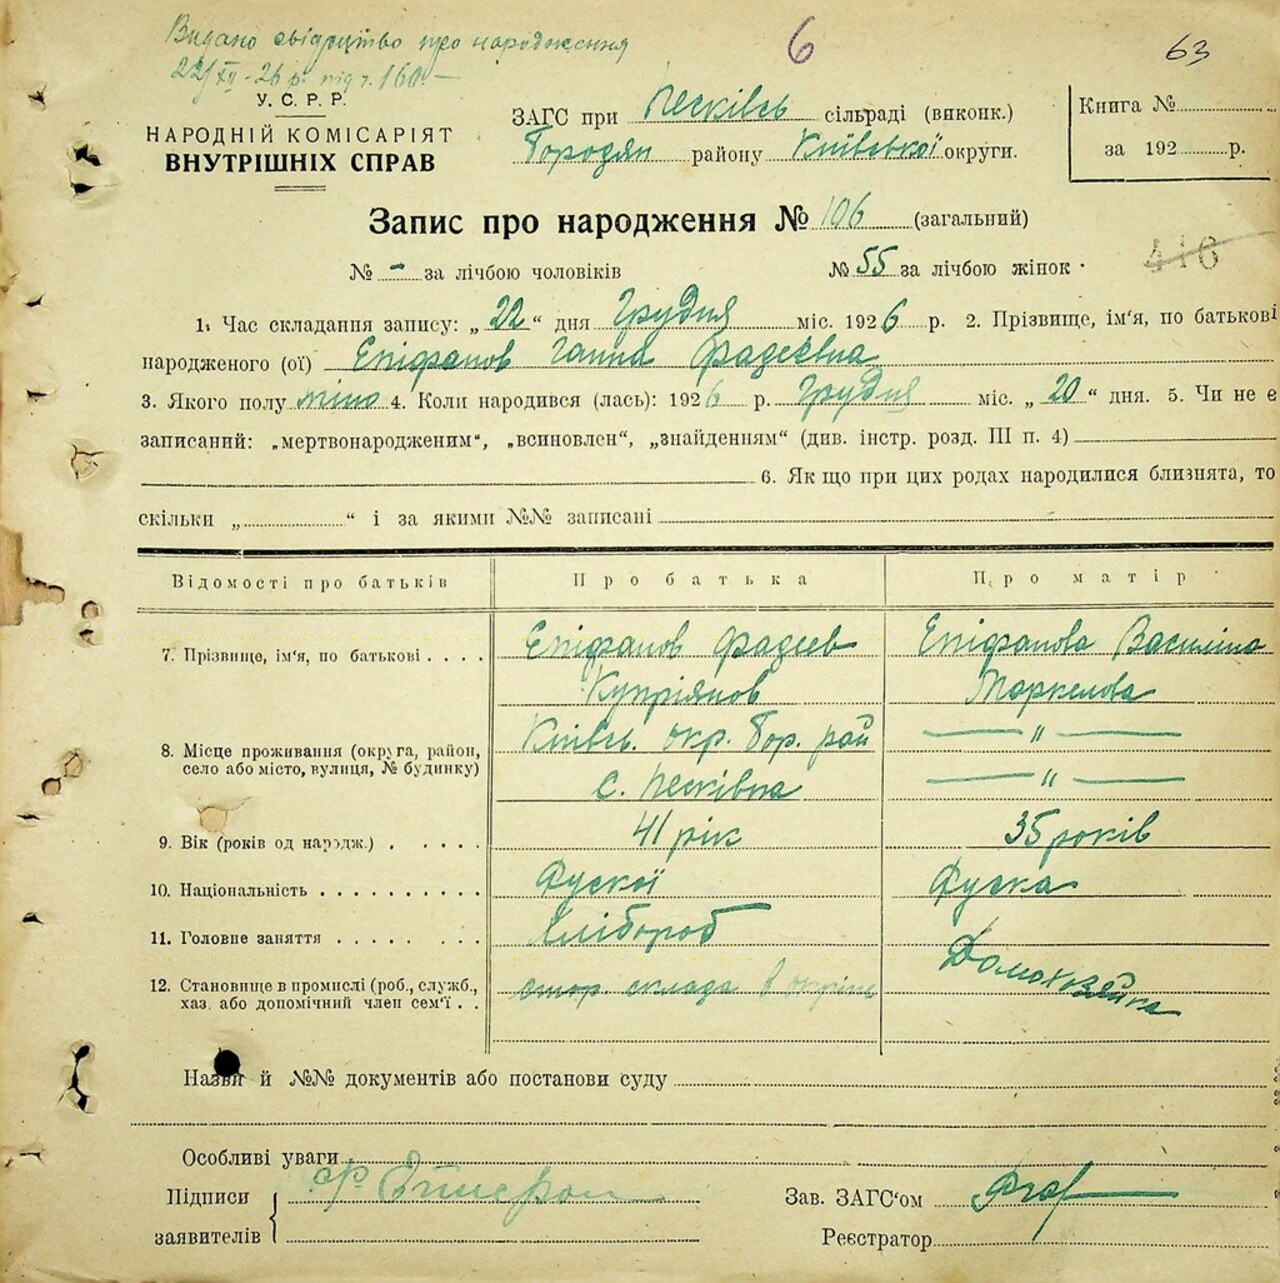 Видано свідоцтво про народження
22/XII-26 р. під ч. 160.
6
63
У. С. Р. Р.
НАРОДНІЙ КОМІСАРІЯТ
ВНУТРІШНІХ СПРАВ
ЗАГС при Пєсківсь сільраді (виконк.)
Бородян району Київської округи.
Книга №
за 192 р.
Запис про народження № 106 (загальний)
№ - за лічбою чоловіків
№ 55 за лічбою жінок
416
1. Час складання запису: „22“ дня Грудня міс. 1926 р. 2. Прізвище, ім'я, по батькові
народженого (ої) Епіфанов Ганна Фадеєвна
3. Якого полу жіно 4. Коли народився (лась): 1926 р. Грудня міс. „20“ дня. 5. Чи не є
записаний: „мертвонародженим“, „всиновлен“, „знайденням“ (див. інстр. розд. III п. 4)
6. Як що при цих родах народилися близнята, то
скільки „ “ і за якими №№ записані
Відомості про батьків
Про батька
Про матір
7. Прізвище, ім'я, по батькові
Епіфанов Фадеєв
Купріянов
Епіфанова Василіна
Маркелова
8. Місце проживання (округа, район,
село або місто, вулиця, № будинку)
Київсь. окр. Бор. рай
с. Пєсківка
— " —
— " —
9. Вік (років од народж.)
41 рік
35 років
10. Національність
Руської
Руска
11. Головне заняття
Хлібороб
12. Становище в промислі (роб., служб.,
хаз. або допомічний член сем'ї
стор. склада в
Домохозяйка
Назви й №№ документів або постанови суду
Особливі уваги
Підписи
заявителів
Зав. ЗАГС'ом
Реєстратор